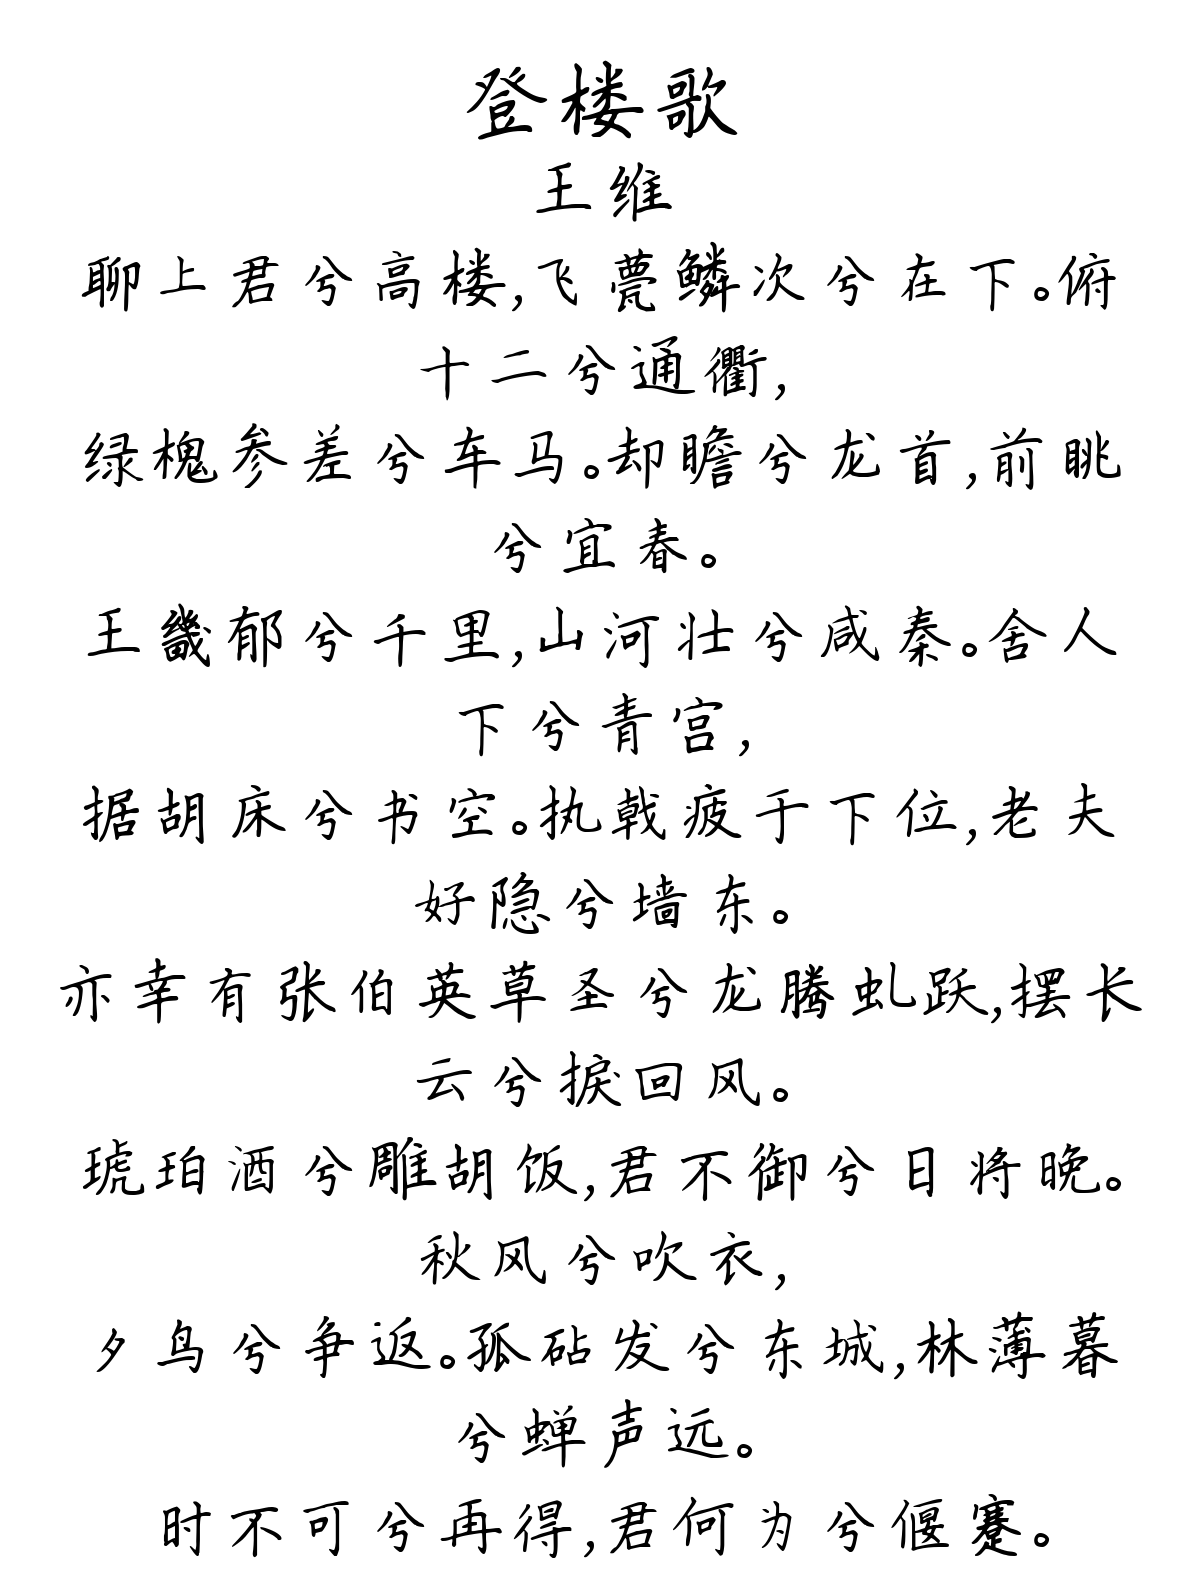 登楼歌
王维
聊上君兮高楼,飞甍鳞次兮在下。俯
十二兮通衢,
绿槐参差兮车马。却瞻兮龙首,前眺
兮宜春。
王畿郁兮千里,山河壮兮咸秦。舍人
下兮青宫,
据胡床兮书空。执戟疲于下位,老夫
好隐兮墙东。
亦幸有张伯英草圣兮龙腾虬跃,摆长
云兮捩回风。
琥珀酒兮雕胡饭,君不御兮日将晚。
秋风兮吹衣,
夕鸟兮争返。孤砧发兮东城,林薄暮
兮蝉声远。
时不可兮再得,君何为兮偃蹇。